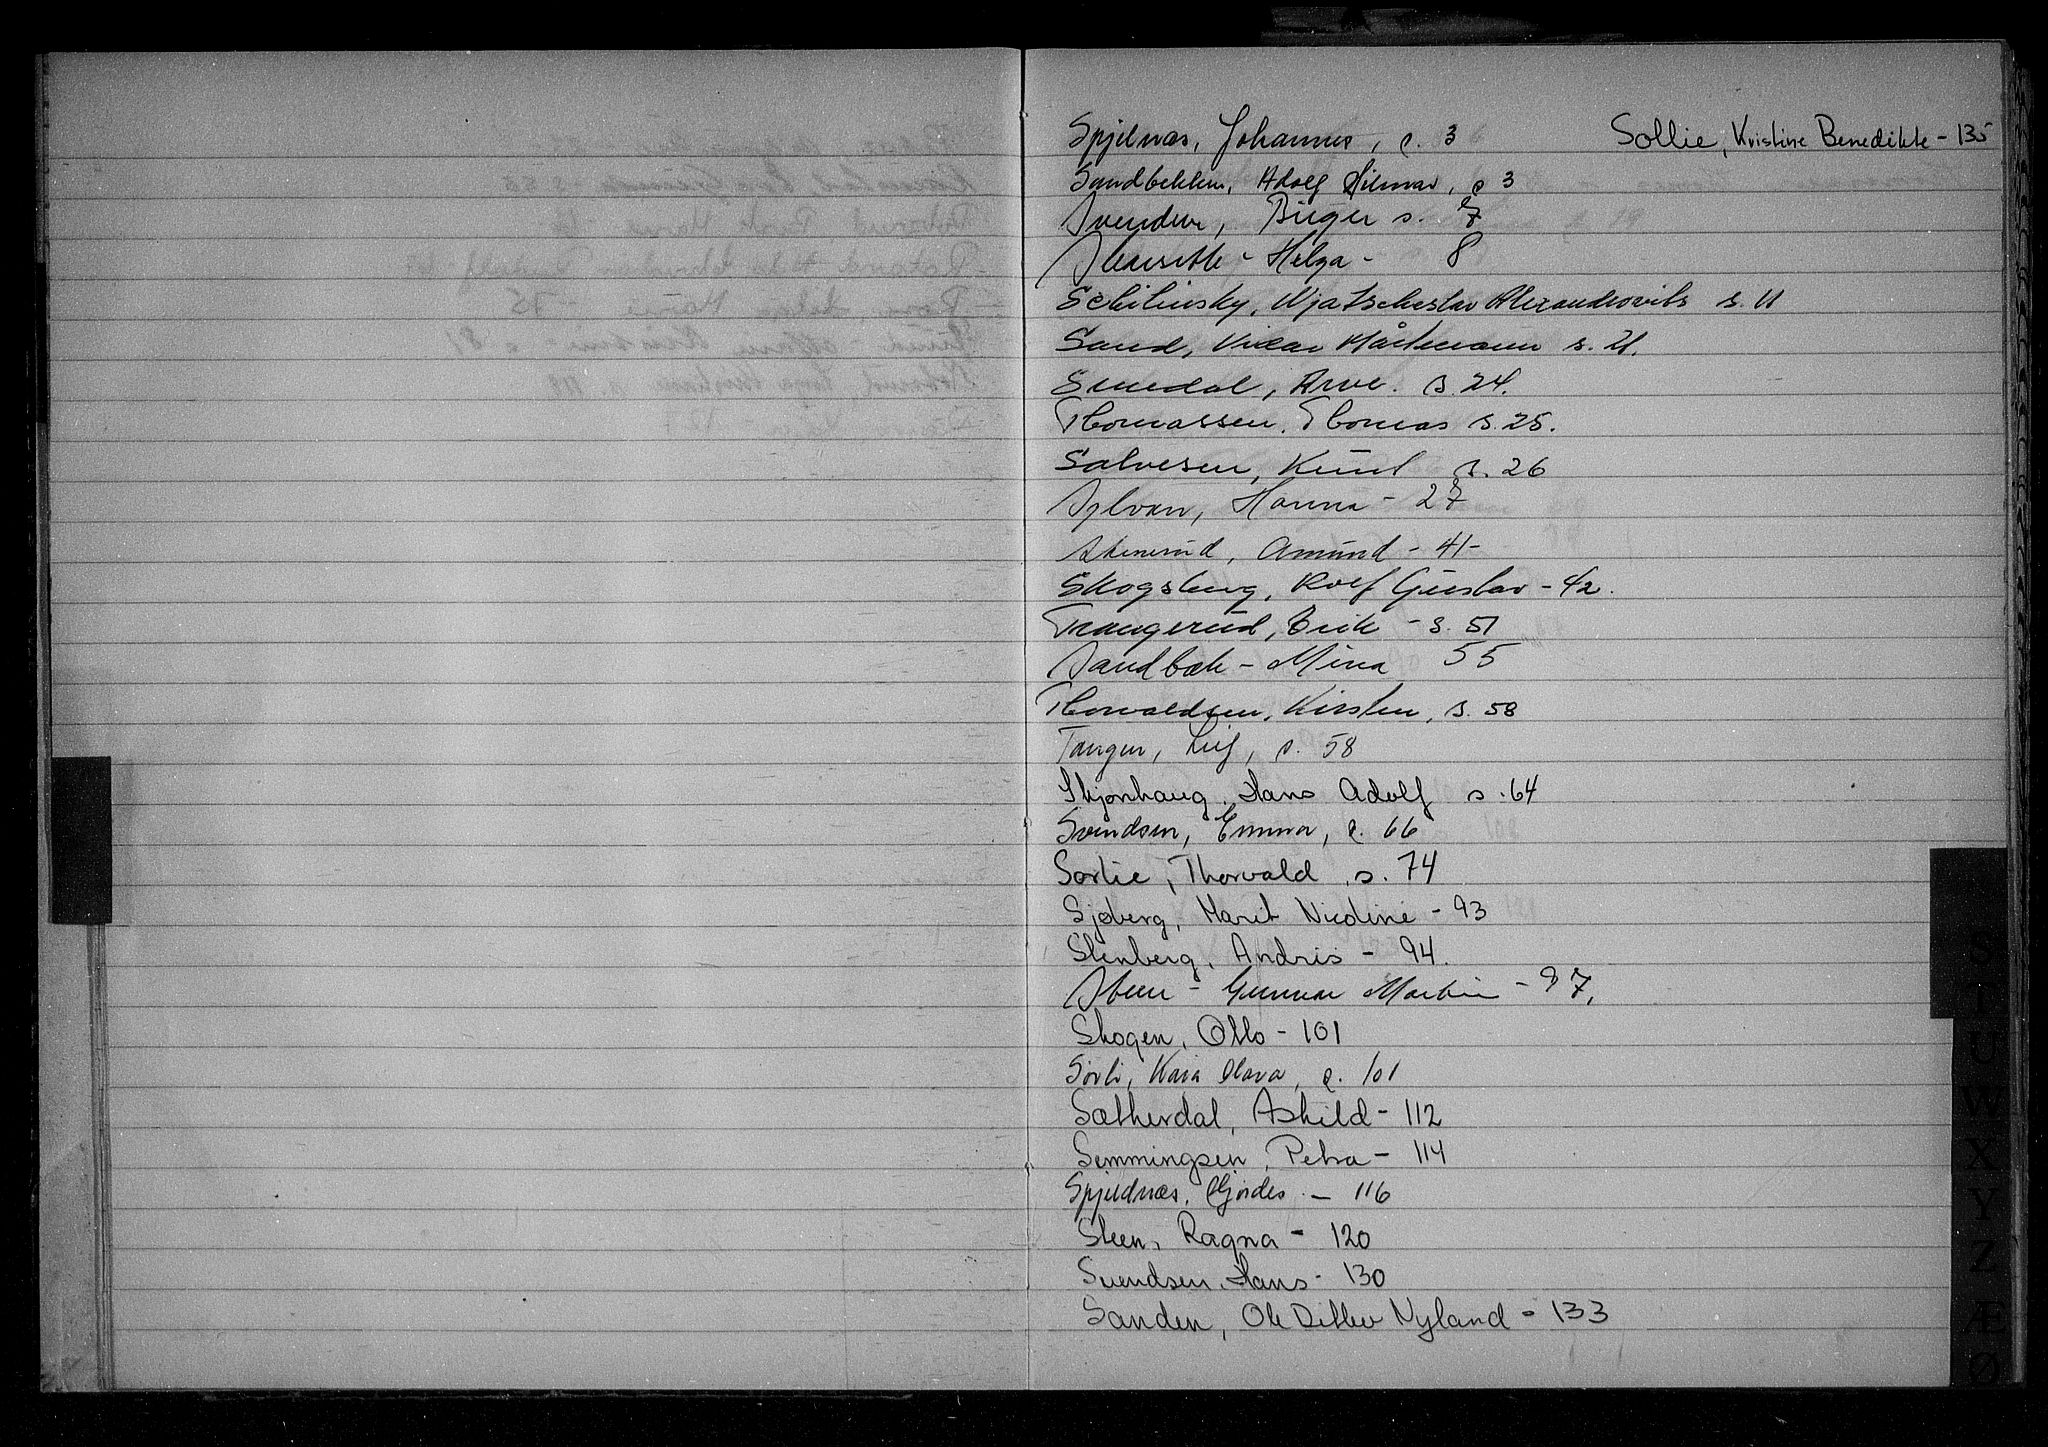 Spjelnæs, Johannes, s. 3
Sandbekken, Adolf Hilmar, s 3
Svendsen, Birger s. 7
Helga - 8
Schilinsky, Wjatscheslav Alexandrovits s. 11
Sand, Vidar Mårtmann s. 21.
Smedal, Arve. s. 24.
Thomassen, Thomas s. 25.
Salvesen, Knut s. 26
Sylvan, Hanna - 27
Stenerud, Amund - 41-
Skogsberg, Rolf Gustav - 42.
Trangerud, Erik - s. 51
Sandbæk - Mina 55
Thorvaldsen, Kirsten, s. 58
Tangen, Leif, s. 58
Skjønhaug, Hans Adolf s. 64
Svendsen, Emma, s. 66
Sørlie, Thorvald s. 74
Sjøberg, Marit Nicoline - 93
Stenberg, Andris - 94.
Steen - Gunnar Martin - 97.
Skogen, Otto - 101
Sørli, Kaia Olava, s. 101
Sætherdal, Askild - 112
Semmingsen, Petra - 114
Spjeldnæs, Hjørdis - 116
Steen, Ragna - 120
Svendsen, Hans - 130
Sanden, Ole Ditlev Nyland - 133
Sollie, Kristine Benedikte - 135
S
T
U
W
X
Y
Z
Æ
Ø